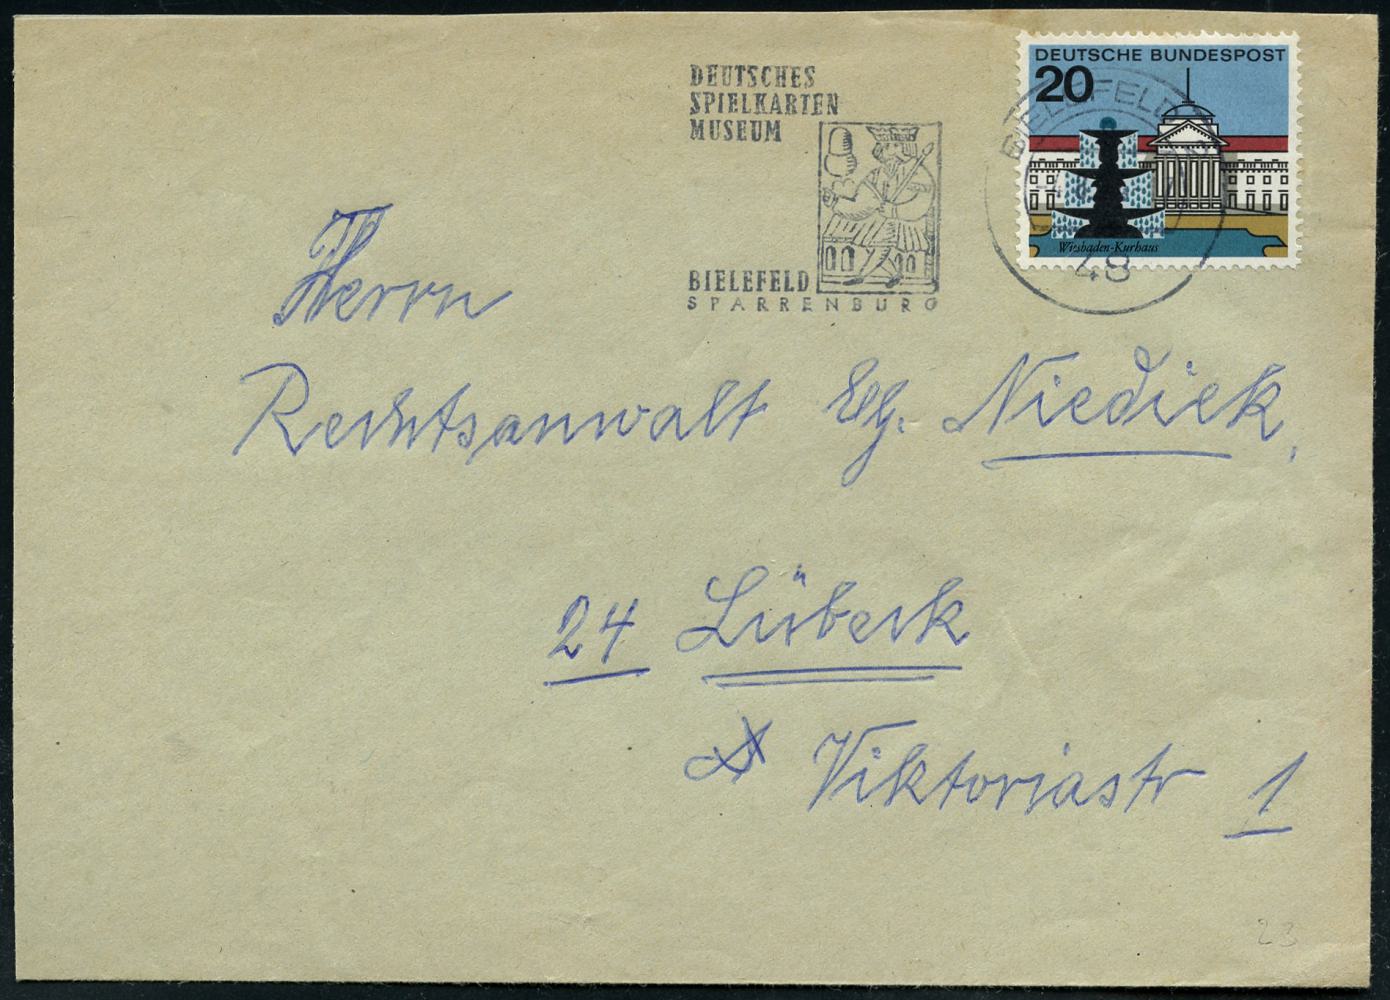 DEUTSCHES
SPIELKARTEN
MUSEUM
BIELEFELD
SPARRENBURG
DEUTSCHE BUNDESPOST
20
Wiesbaden-Kurhaus
BIELEFELD
48
Herrn
Rechtsanwalt Niediek,
24 Lübeck
Viktoriastr 1
23